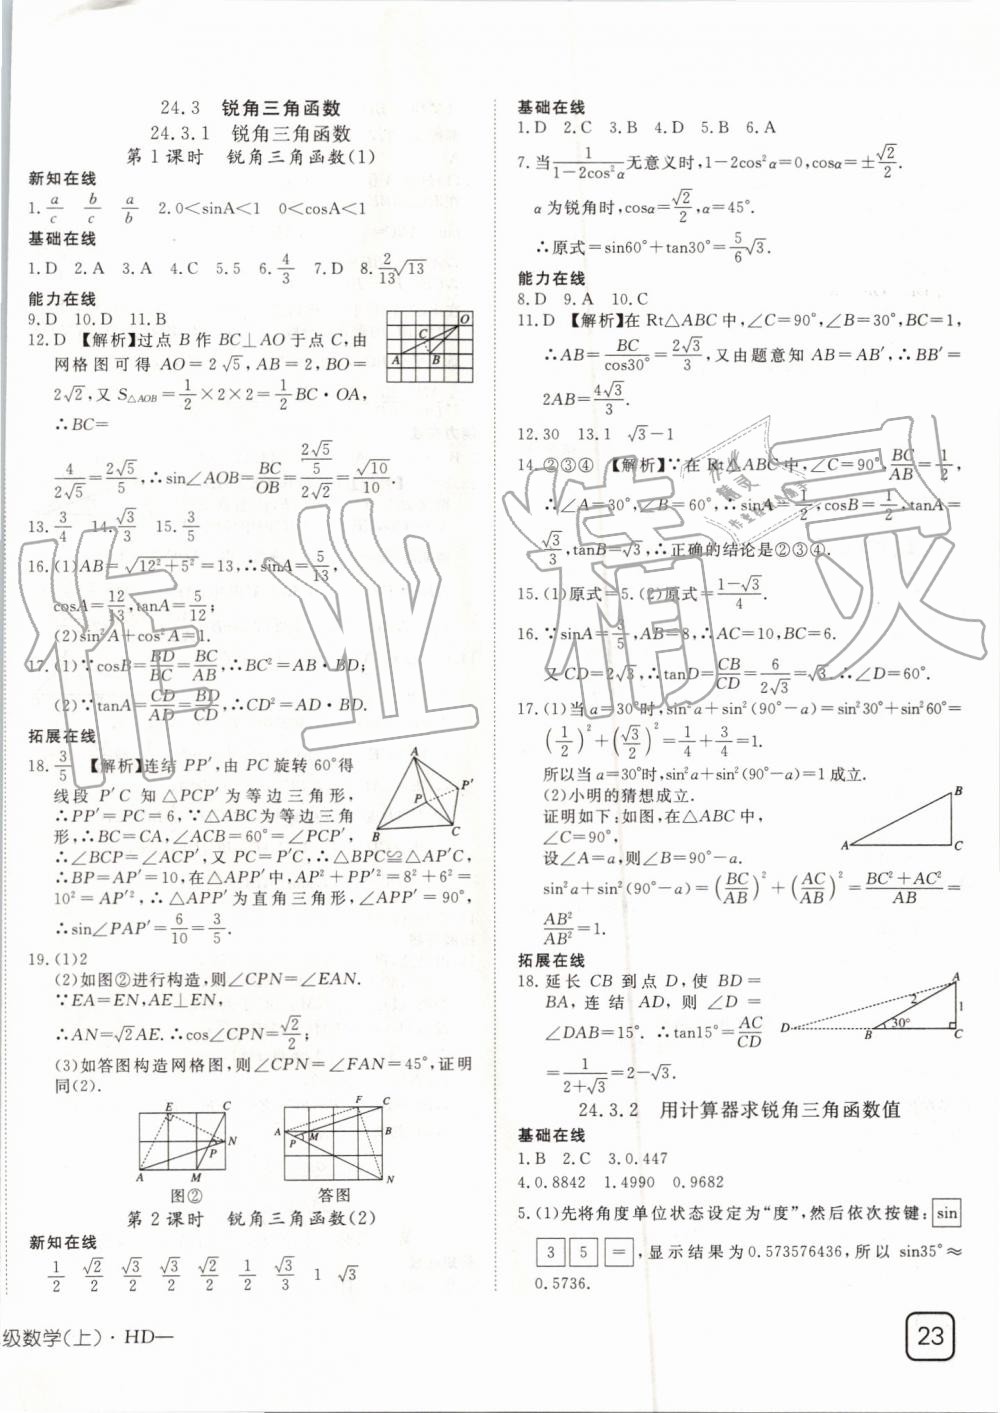 24.3 锐角三角函数
24.3.1 锐角三角函数
第1课时 锐角三角函数(1)
新知在线
1. a/c b/c a/b 2.0<sinA<1 0<cosA<1
基础在线
1.D 2.A 3.A 4.C 5.5 6.4/3 7.D 8.2/13√13
能力在线
9.D 10.D 11.B
12.D 【解析】过点 B 作 BC⊥AO 于点 C,由
网格图可得 AO=2√5,AB=2,BO=
2√2,又 S△AOB=1/2×2×2=1/2BC·OA,
∴BC=
4/(2√5)=2√5/5,∴sin∠AOB=BC/OB=(2√5/5)/(2√2)=√10/10.
13.3/4 14.√3/3 15.3/5
16.(1)AB=√(12²+5²)=13,∴sinA=5/13,
cosA=12/13,tanA=5/12;
(2)sin²A+cos²A=1.
17.(1)∵cosB=BD/BC=BC/AB,∴BC²=AB·BD;
(2)∵tanA=CD/AD=BD/CD,∴CD²=AD·BD.
拓展在线
18.3/5 【解析】连结 PP′,由 PC 旋转 60°得
线段 P′C 知△PCP′为等边三角形,
∴PP′=PC=6,∵△ABC为等边三角
形,∴BC=CA,∠ACB=60°=∠PCP′,
∴∠BCP=∠ACP′,又 PC=P′C,∴△BPC≌△AP′C,
∴BP=AP′=10,在△APP′中,AP²+PP′²=8²+6²=
10²=AP′²,∴△APP′为直角三角形,∠APP′=90°,
∴sin∠PAP′=6/10=3/5.
19.(1)2
(2)如图②进行构造,则∠CPN=∠EAN.
∵EA=EN,AE⊥EN,
∴AN=√2AE.∴cos∠CPN=√2/2;
(3)如答图构造网格图,则∠CPN=∠FAN=45°,证明
同(2).
图② 答图
第2课时 锐角三角函数(2)
新知在线
1/2 √2/2 √3/2 √3/2 √2/2 1/2 √3/3 1 √3
级数学(上)·HD—
基础在线
1.D 2.C 3.B 4.D 5.B 6.A
7.当1/(1-2cos²α)无意义时,1-2cos²α=0,cosα=±√2/2.
α为锐角时,cosα=√2/2,α=45°.
∴原式=sin60°+tan30°=5/6√3.
能力在线
8.D 9.A 10.C
11.D 【解析】在Rt△ABC中,∠C=90°,∠B=30°,BC=1,
∴AB=BC/cos30°=2√3/3,又由题意知 AB=AB′,∴BB′=
2AB=4√3/3.
12.30 13.1 √3-1
14.②③④ 【解析】∵在Rt△ABC中,∠C=90°,BC/AB=1/2,
∴∠A=30°,∠B=60°,∴sinA=1/2,cosB=1/2,tanA=
√3/3,tanB=√3,∴正确的结论是②③④.
15.(1)原式=5.(2)原式=(1-√3)/4.
16.∵sinA=3/5,AB=8,∴AC=10,BC=6.
又CD=2√3,∴tanD=CB/CD=6/(2√3)=√3.∴∠D=60°.
17.(1)当a=30°时,sin²a+sin²(90°-a)=sin²30°+sin²60°=
(1/2)²+(√3/2)²=1/4+3/4=1.
所以当a=30°时,sin²a+sin²(90°-a)=1成立.
(2)小明的猜想成立.
证明如下:如图,在△ABC中,
∠C=90°,
设∠A=a,则∠B=90°-a.
sin²a+sin²(90°-a)=(BC/AB)²+(AC/AB)²=(BC²+AC²)/AB²=
AB²/AB²=1.
拓展在线
18.延长 CB 到点 D,使 BD=
BA,连结 AD,则∠D=
∠DAB=15°.∴tan15°=AC/CD
=1/(2+√3)=2-√3.
24.3.2 用计算器求锐角三角函数值
基础在线
1.B 2.C 3.0.447
4.0.8842 1.4990 0.9682
5.(1)先将角度单位状态设定为“度”,然后依次按键:sin
3 5 =,显示结果为0.573576436,所以 sin35°≈
0.5736.
23
作业精灵